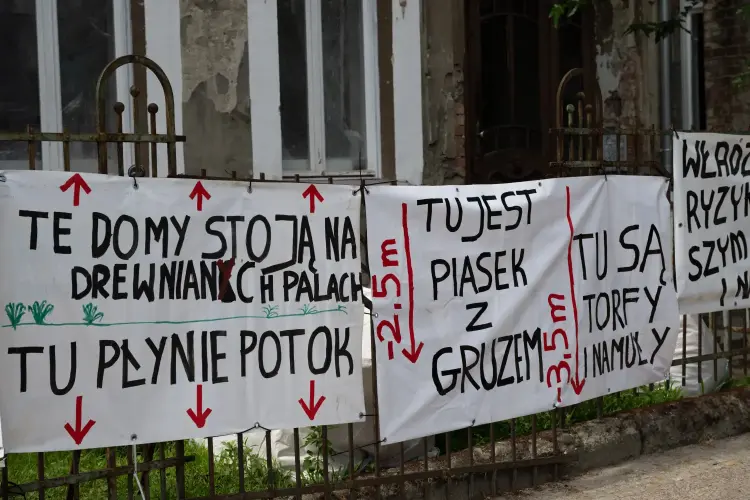 TE DOMY STOJĄ NA
DREWNIANYCH PALACH
TU PŁYNIE POTOK
-2,5m
TU JEST
PIASEK
Z
GRUZEM
-3,5m
TU SĄ
TORFY
I NAMUŁY
RYZYK
SZYM